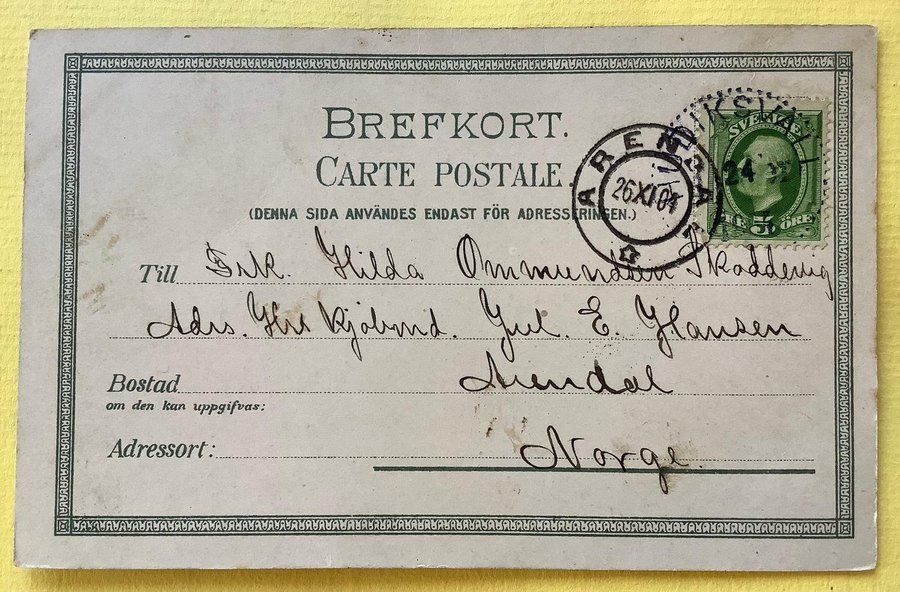 BREFKORT.
CARTE POSTALE
(DENNA SIDA ANVÄNDES ENDAST FÖR ADRESSERINGEN.)
SVERIGE
24
5 ÖRE
ARENDAL
26 XI 04
Till Frk. Hilda Ommundsen Skaddevig
Adrs. Hr Kjøbmd. Gul. E. Hansen
Bostad Arendal
om den kan uppgifvas:
Adressort: Norge.